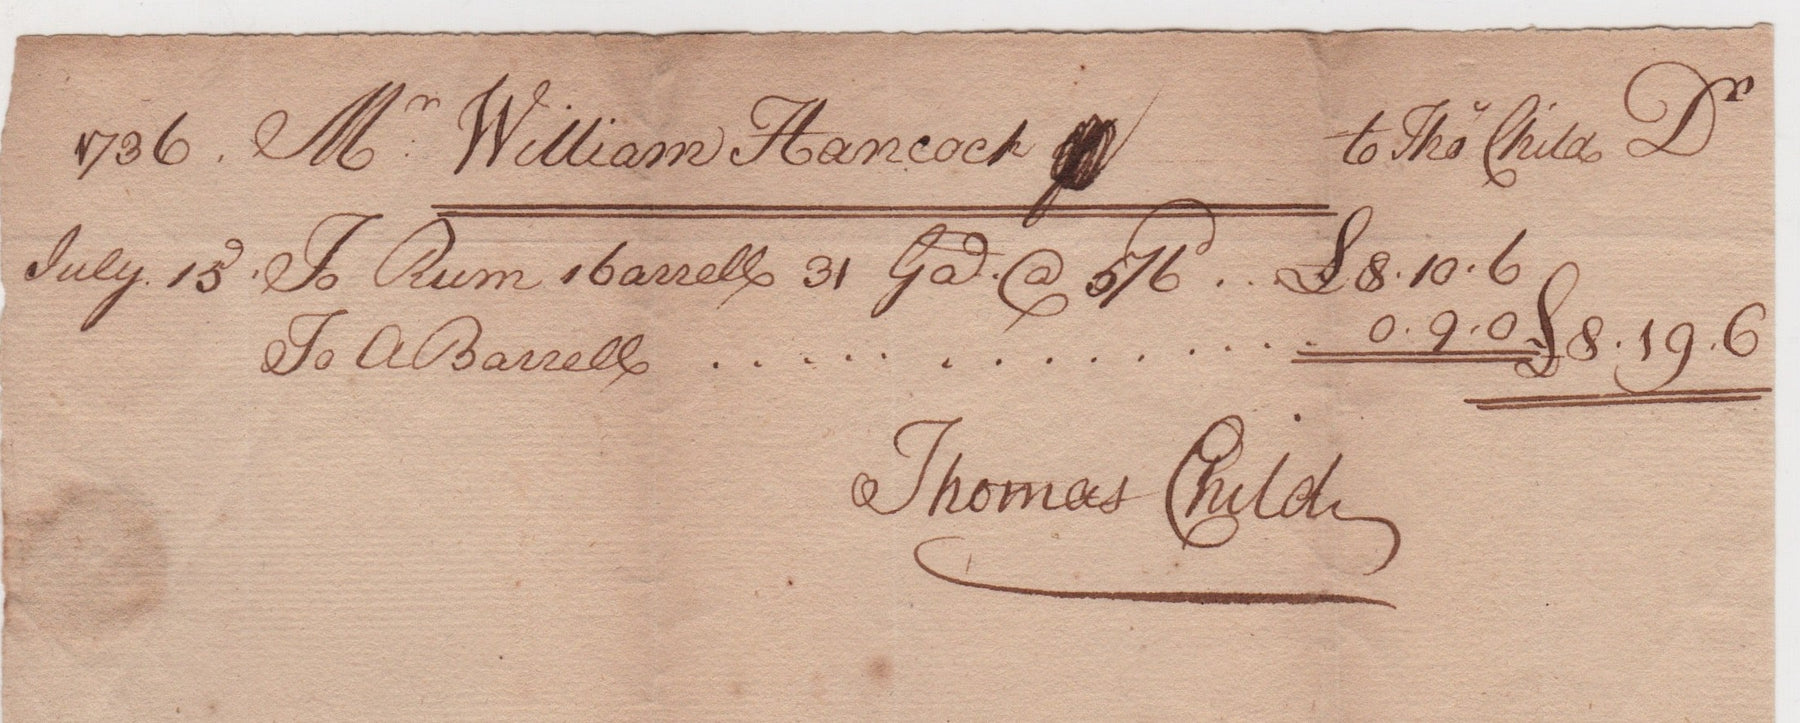 1736. Mr. William Hancock to Thos Child Dr
July. 15d. To Rum 1 barrell 31 Gad. @ 5/6 ... £8.10.6
To A Barrell . . . . . . . . . . . . . . 0.9.0 £8.19.6
Thomas Child